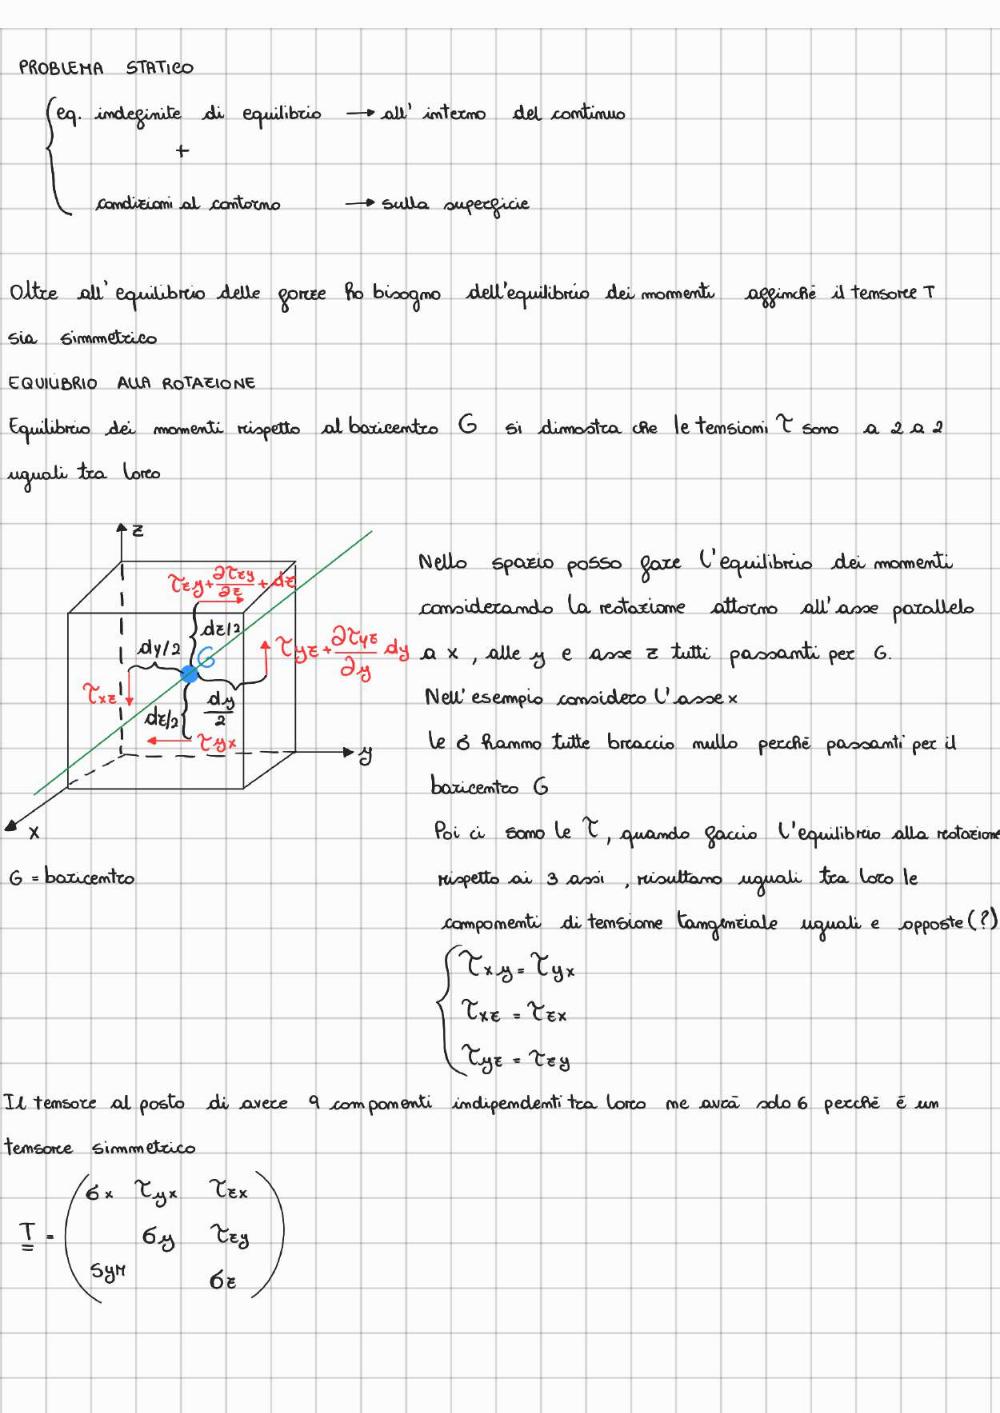 PROBLEMA STATICO
eq. indefinite di equilibrio → all' interno del continuo
+
condizioni al contorno → sulla superficie
Oltre all' equilibrio delle forze ho bisogno dell'equilibrio dei momenti affinchè il tensore T
sia simmetrico
EQUILIBRIO ALLA ROTAZIONE
Equilibrio dei momenti rispetto al baricentro G si dimostra che le tensioni τ sono a 2 a 2
uguali tra loro
z
τzy + ∂τzy/∂z + dz
dz/2
dy/2
G
τyz + ∂τyz/∂y dy
τxz
dz/2
dy/2
τyx
y
x
G = baricentro
Nello spazio posso fare l'equilibrio dei momenti
considerando la rotazione attorno all'asse parallelo
a x, alle y e asse z tutti passanti per G.
Nell'esempio considero l'asse x
le σ hanno tutte braccio nullo perchè passanti per il
baricentro G
Poi ci sono le τ, quando faccio l'equilibrio alla rotazione
rispetto ai 3 assi, risultano uguali tra loro le
componenti di tensione tangenziale uguali e opposte (?)
τxy = τyx
τxz = τzx
τyz = τzy
Il tensore al posto di avere 9 componenti indipendenti tra loro ne avrà solo 6 perchè è un
tensore simmetrico
σx τyx τzx
T = σy τzy
SYM σz